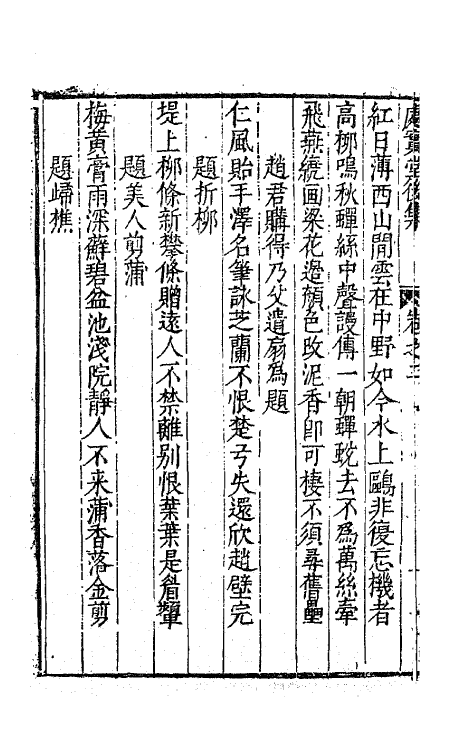 處實堂後集 卷之二
紅日薄西山閒雲在中野如今水上鷗非復忘機者
高栁鳴秋蟬絲中聲謾傳一朝蟬蛻去不爲萬絲牽
飛燕繞画梁花邉顔色改泥香卽可棲不須尋舊壘
趙君購得乃父遺扇爲題
仁風貽手澤名筆詠芝蘭不恨楚弓失還欣趙璧完
題折栁
堤上栁條新攀條贈遠人不禁離别恨葉葉是眉顰
題美人剪蒲
梅黄膏雨深蘇碧盆池淺院靜人不来蒲香落金剪
題歸樵